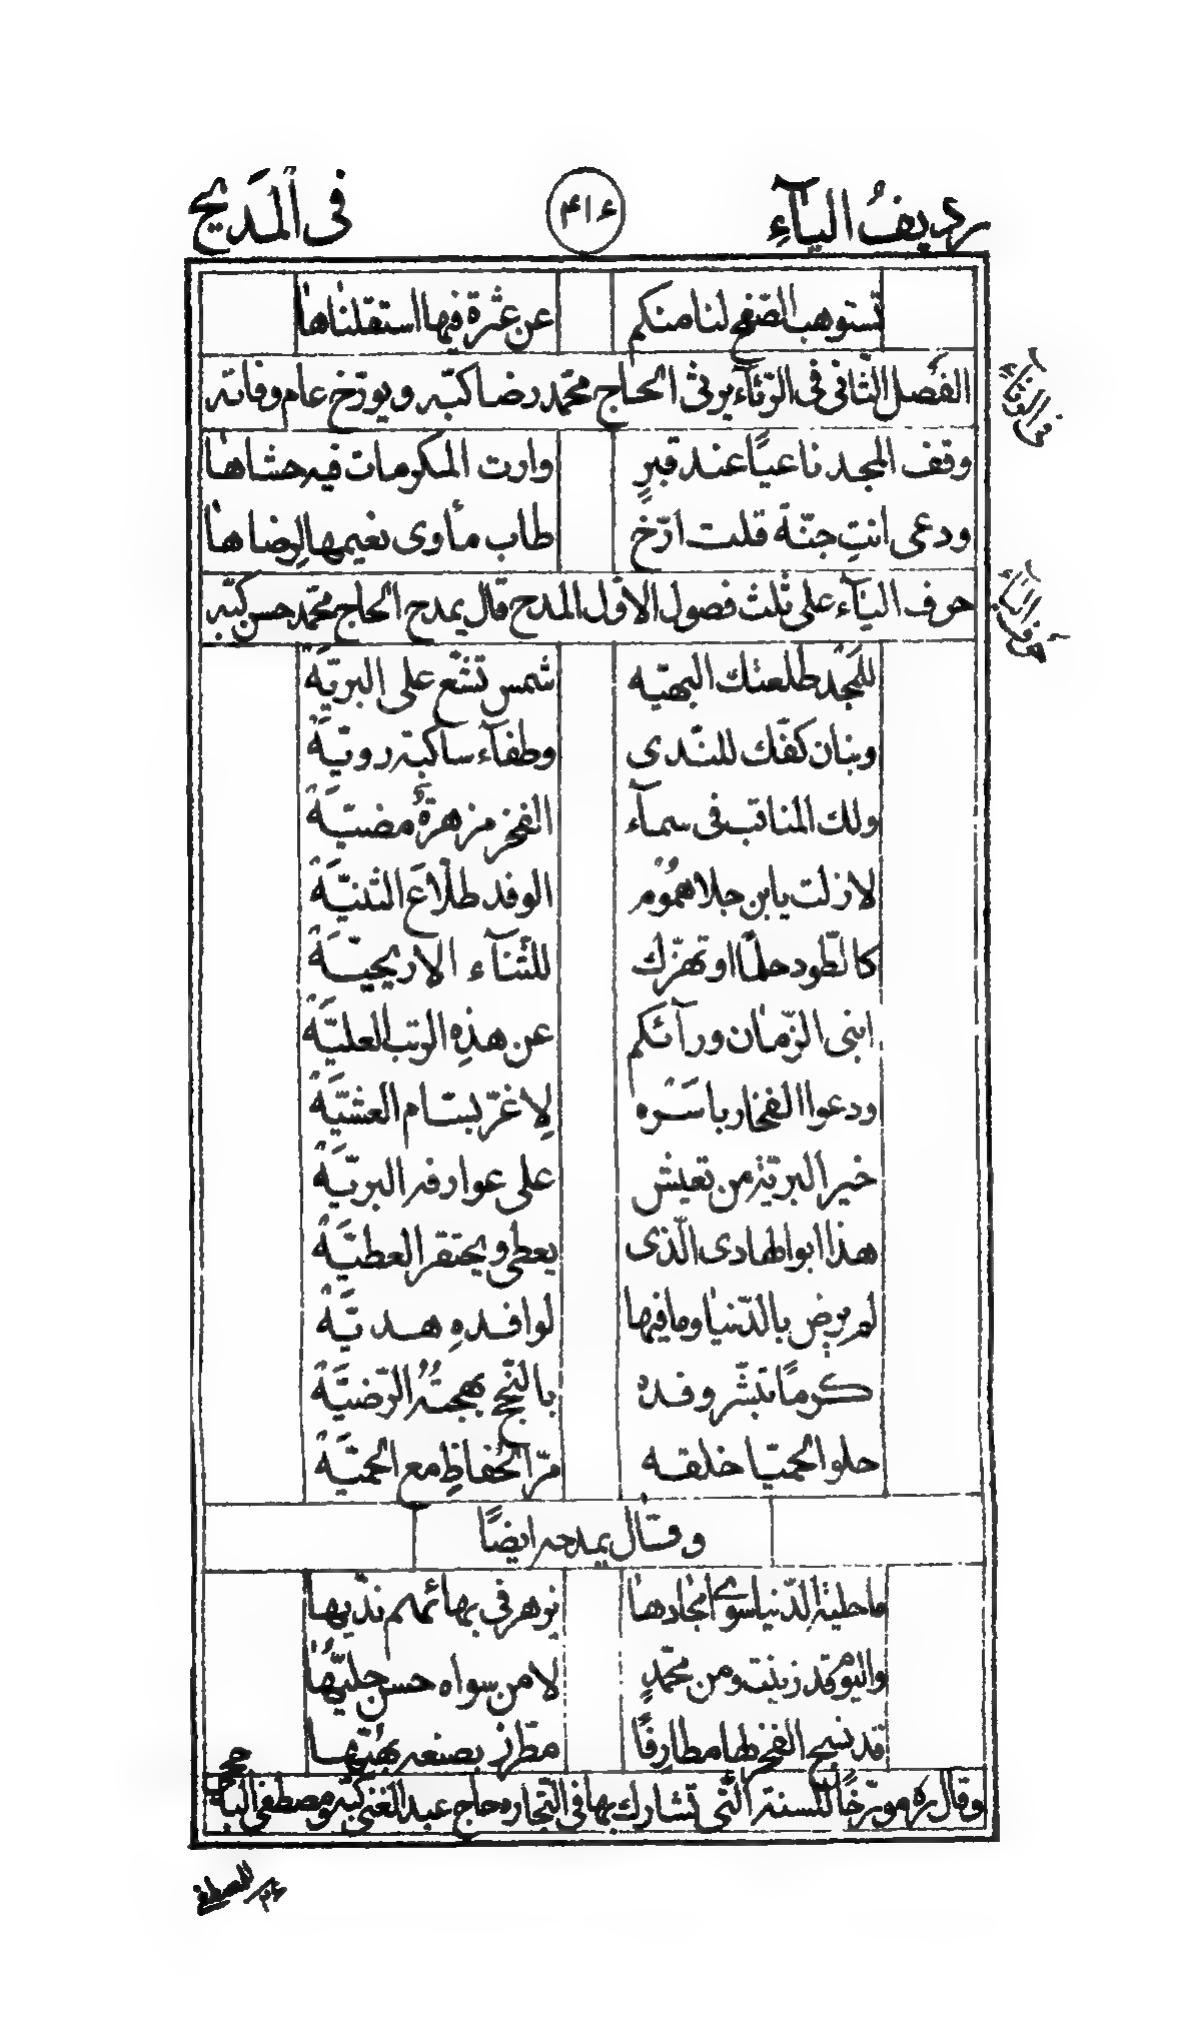 رديفُ اليآءِ ٤١٤ فى المَديح
تستوهب الصّفح لنا منكم عن عثرة فيها استقلناها
الفصل الثّانى فى الرّثآء يرثى الحاج محمّد رضا كبّه ويورّخ عام وفاته
فى الوفاء
وقف المجد ناعيًا عند قبرٍ وارت المكرمات فيه حشاها
ودعى انتِ جنّة قلت ارّخ طاب مأوى نعيمها لِرضاها
حرف اليآء على ثلث فصول الاوّل المدح قال يمدح الحاج محمّد حسن كبّه
حرف الياء
للمجد طلعتك البهيّه شمس تشّع على البريّة
وبنان كفّك للنّدى وطفآء ساكبة رويّة
ولك المناقب فى سمآء الفخر مزهرة مضيّة
لازلت يابن جلا هموم الوفد طلّاع الثنيّة
كالطّود حلمًا او تهزّك للثّنآء الاريحيّة
ابنى الزّمان ورآئكم عن هذِه الرتب العليّة
ودعوا الفخار باسره لِاغرّ بسّام العشيّة
خير البريّة من تعيش على عوارفه البريّة
هذا ابوالهادى الّذى يعطى ويحتقر العطيّة
لم يرض بالدّنيا وما فيها لوافدهِ هديّة
كرمًا تبشّر وفده بالنّجح بهجتهُ الرّضيّة
حلو المحيّا خلقه مرّ الحُفاظِ مع الحميّة
وقال يمدحه ايضًا
ما حلية الدّنيا سوى امجادها نوهر فى بهائهم نديّها
واليوم قد زينت ومن محمّدٍ لا من سواه حسن حليّها
قد نسج الفخر لها مطارفًا مطرّز بصنعه بهيّها
وقال ره مورّخًا للسنة الّتى تشارك بها فى التّجاره حاج عبدالغنى كبّه ومصطفى
للمصطفى